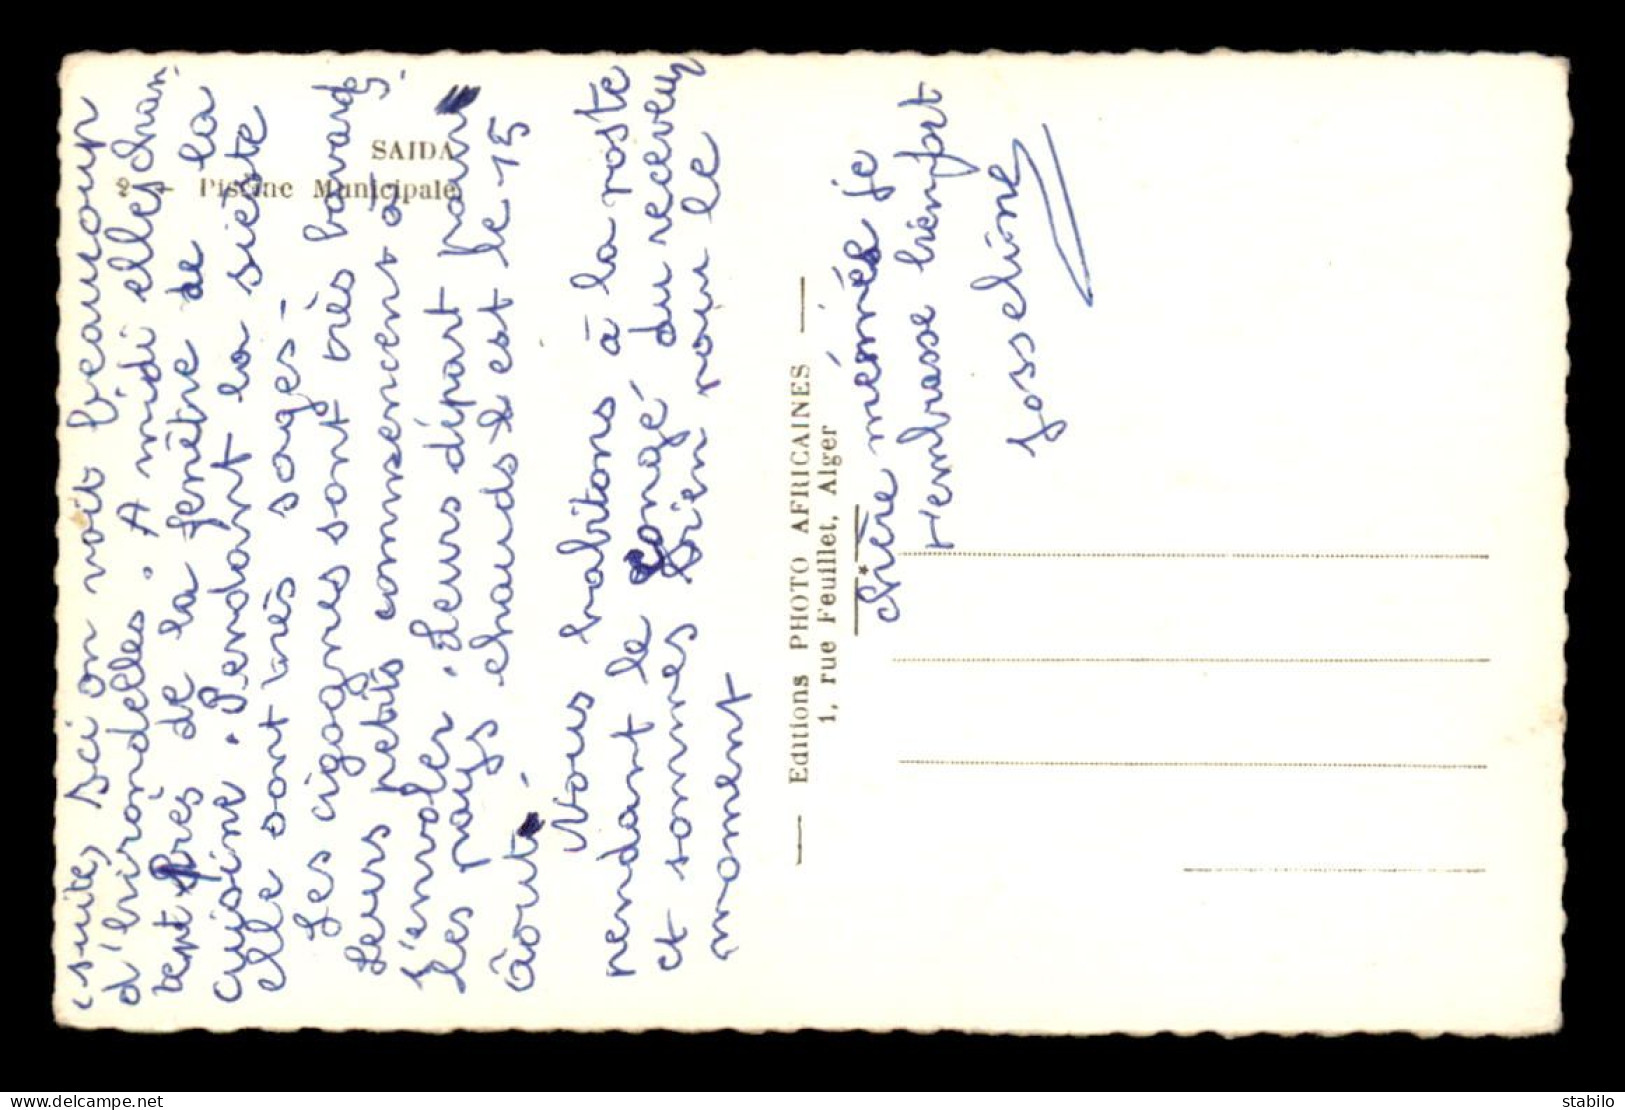 SAIDA
2 - Piscine Municipale
(suite) Ici on voit beaucoup
d'hirondelles. A midi elles chan-
tent près de la fenêtre de la
cuisine. Pendant la sièste
elle sont très sages -
Les cigognes sont très bavards.
Leurs petits commencent à
s'envoler. Leurs départ pour
les pays chauds est le 15
Aoùt.
Nous habitons à la poste
pendant le congé du receveur
et sommes bien pour le
moment
— Editions PHOTO AFRICAINES —
1, rue Feuillet, Alger
*
chère mémée je
t'embrasse bien fort
Josseline
www.delcampe.net
stabilo